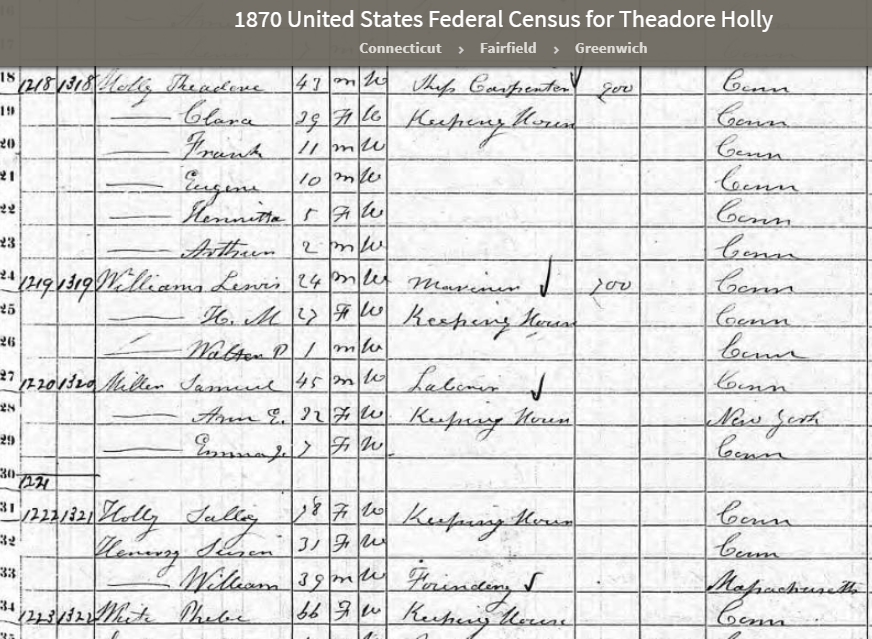 1870 United States Federal Census for Theadore Holly
Connecticut › Fairfield › Greenwich
18 1218 1318 Holly Theadore 43 m W Ship Carpenter 900 Conn
19 — Clara 39 F W Keeping House Conn
20 — Frank 11 m W Conn
21 — Eugene 10 m W Conn
22 — Henritta 5 F W Conn
23 — Arthur 2 m W Conn
24 1219 1319 Williams Lewis 24 m W Mariner 700 Conn
25 — H. M 27 F W Keeping House Conn
26 — Walter P 1 m W Conn
27 1220 1320 Miller Samuel 45 m W Laborer Conn
28 — Ann E. 32 F W Keeping House New York
29 — Emma J. 7 F W Conn
30 1221
31 1222 1321 Holly Sally 78 F W Keeping House Conn
32 Susan 31 F W Conn
33 — William 39 m W Massachusetts
34 1223 1322 White Phebe 66 F W Keeping House Conn